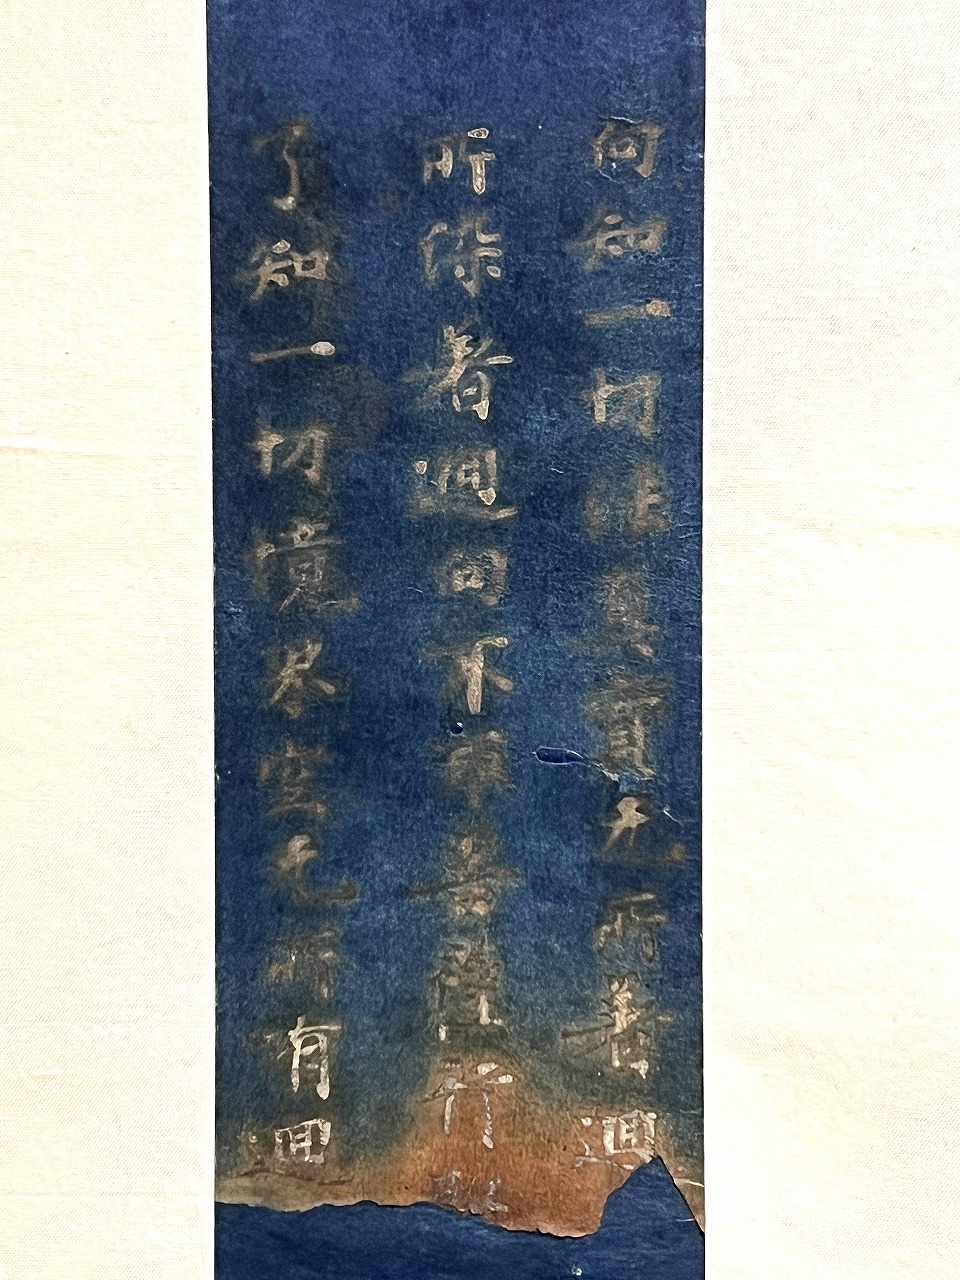 向知一切法真實无所著迴
所染著迴向下善行
了知一切境界空无所有迴